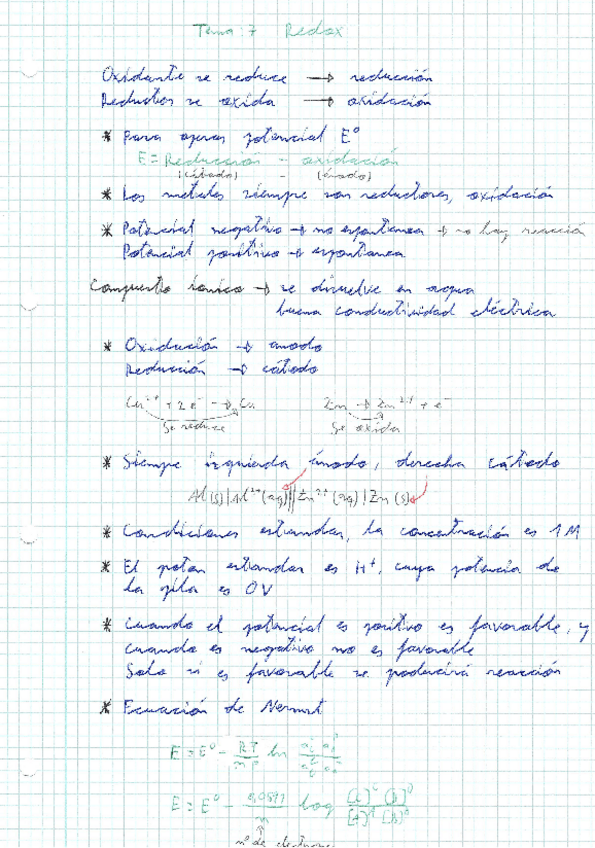 Tema: 7 Redox
Oxidante se reduce → reducción
Reductor se oxida → oxidación
* Para operar potencial E⁰
E = Reducción - oxidación
(cátodo) - (ánodo)
* Los metales siempre son reductores, oxidación
* Potencial negativo → no espontanea → no hay reacción
Potencial positivo → espontanea
Compuesto iónico → se disuelve en agua
buena conductividad eléctrica
* Oxidación → anodo
Reducción → cátodo
Cu²⁺ + 2e⁻ → Cu Zn → Zn²⁺ + e⁻
Se reduce Se oxida
* Siempre izquierda ánodo, derecha cátodo
Al(s)|Al³⁺(aq)||Zn²⁺(aq)|Zn(s)
* Condiciones estandar, la concentración es 1M
* El estandar es H⁺, cuya potencia de
la pila es 0V
* Cuando el potencial es positivo es favorable, y
cuando es negativo no es favorable
Solo si es favorable se producirá reacción
* Ecuación de Nernst
E = E⁰ - RT ln
E = E⁰ - log
nº de electrones